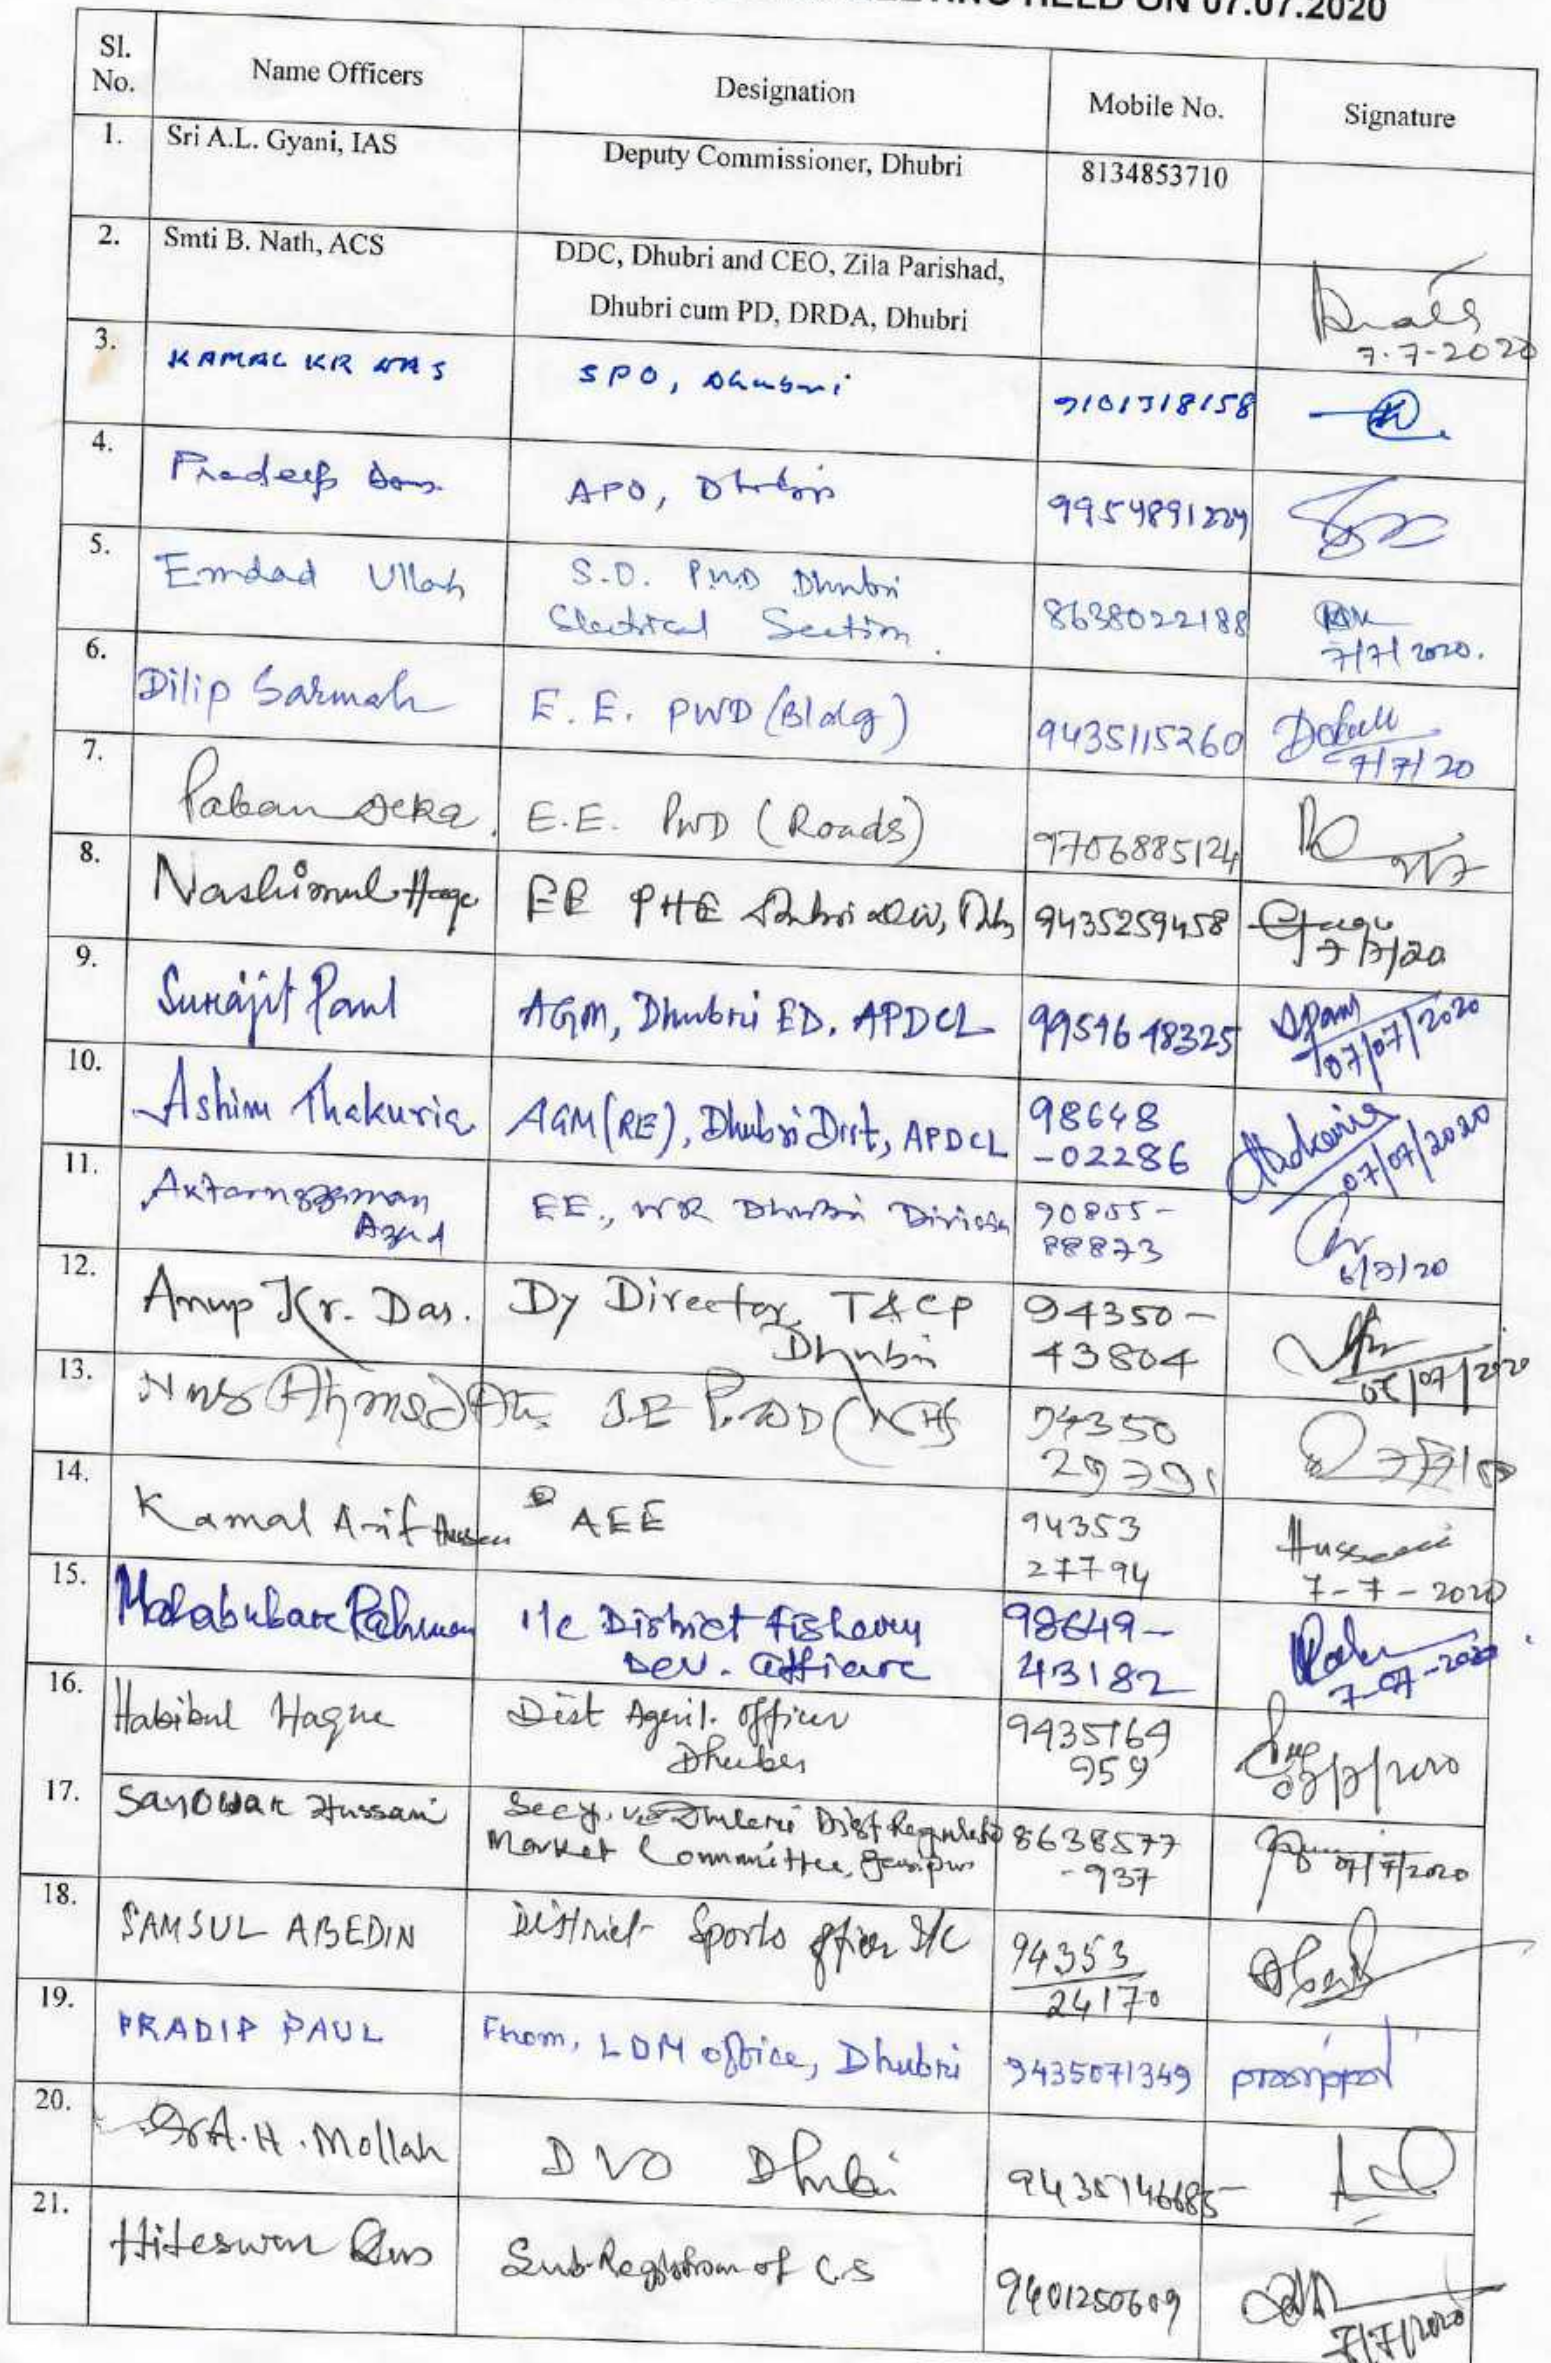 HELD ON 07.07.2020
Sl. No. Name Officers Designation Mobile No. Signature
1. Sri A.L. Gyani, IAS Deputy Commissioner, Dhubri 8134853710
2. Smti B. Nath, ACS DDC, Dhubri and CEO, Zila Parishad,
Dhubri cum PD, DRDA, Dhubri
7.7-2020
3. KAMAL KR DAS SPO, Dhubri 9101318158
4. Pradeep Das APO, Dhubri 9954891229
5. Emdad Ullah S.D. PWD Dhubri
Electrical Section. 8638022188
7/7/2020.
6. Dilip Sarmah E.E. PWD (Bldg) 9435115260
7/7/20
7. Paban Deka. E.E. PWD (Roads) 9706885124
8. Nashimul Haque EE PHE Dhubri 9435259458
7/7/20
9. Surajit Paul AGM, Dhubri ED, APDCL 9954648325
07/07/2020
10. Ashim Thakuria AGM(RE), Dhubri Dist, APDCL 98648
-02286
07/07/2020
11. Aktaruzzaman
Azad EE., WR Dhubri Division 90855-
88873
12. Anup Kr. Das. Dy Director, T&CP
Dhubri 94350-
43804
13. Ahmed PWD (NH) 94350
29791
14. Kamal Asif Hussain AEE 94353
27794
Hussain
7-7-2020
15. Mahabubar Rahman I/c District Fishery
Dev. Officer 98649-
43182
7-07-2020
16. Habibul Haque Dist Agril. Officer
Dhubri 9435164
959
17. Sanowar Hussain Secy. Dhubri Dist Regulated
Market Committee, Gauripur 8638577
-937
07/7/2020
18. SAMSUL ABEDIN District Sports Officer I/C 94353
24170
19. PRADIP PAUL From, LDM office, Dhubri 9435071349
20. Dr A.H. Mollah DVO Dhubri 9435146685
21. Hiteswar Das Sub-Registrar of C.S 9401250609
7/7/2020